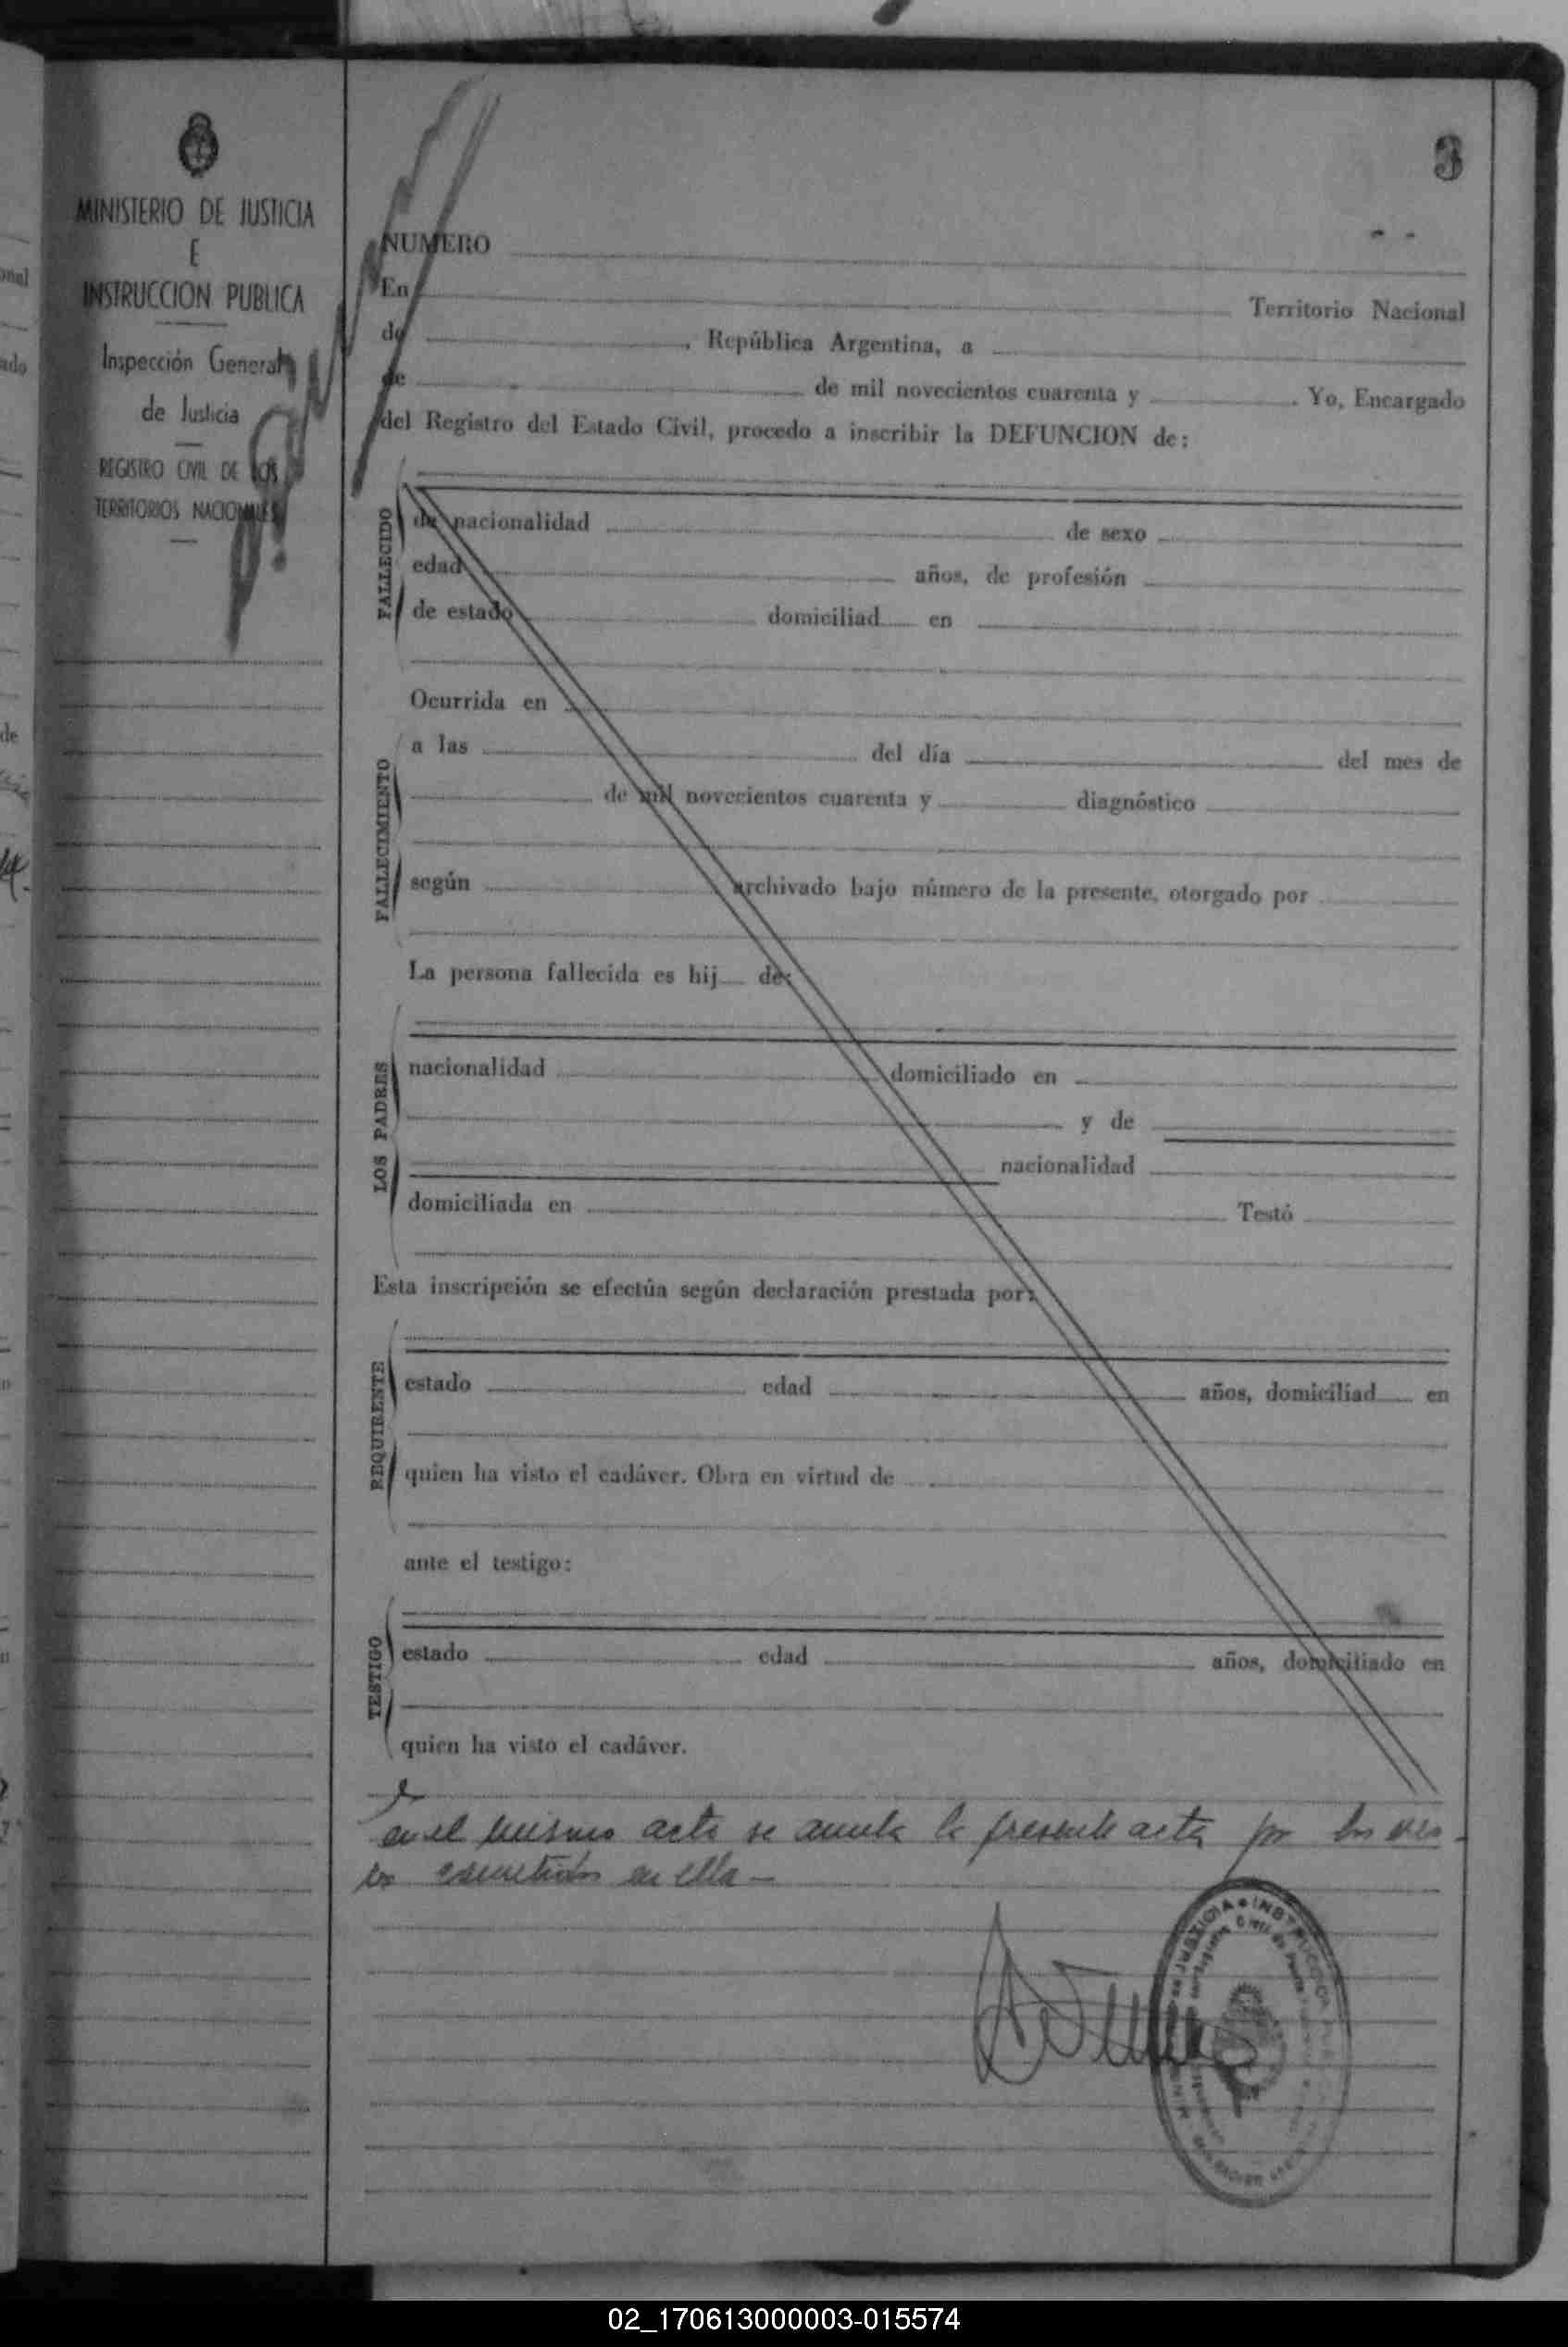 3
MINISTERIO DE JUSTICIA
E
INSTRUCCION PUBLICA
Inspección General
de Justicia
REGISTRO CIVIL DE LOS
TERRITORIOS NACIONALES
NUMERO
En Territorio Nacional
de , República Argentina, a
de de mil novecientos cuarenta y . Yo, Encargado
del Registro del Estado Civil, procedo a inscribir la DEFUNCION de:
FALLECIDO
de nacionalidad de sexo
edad años, de profesión
de estado domiciliad en
Ocurrida en
FALLECIMIENTO
a las del día del mes de
de mil novecientos cuarenta y diagnóstico
según archivado bajo número de la presente, otorgado por
La persona fallecida es hij de:
LOS PADRES
nacionalidad domiciliado en
y de
nacionalidad
domiciliada en Testó
Esta inscripción se efectúa según declaración prestada por:
REQUIRENTE
estado edad años, domiciliad en
quien ha visto el cadáver. Obra en virtud de
ante el testigo:
TESTIGO
estado edad años, domiciliado en
quien ha visto el cadáver.
en el mismo acto se anula la presente acta por los
en ella -
02_170613000003-015574